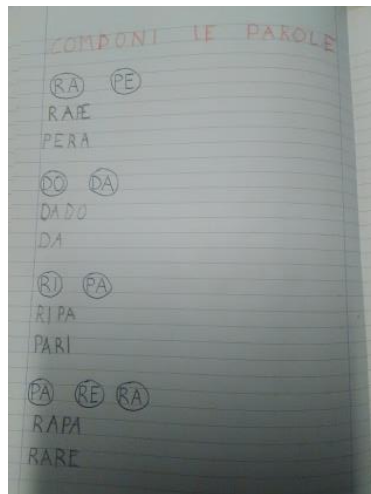 COMPONI LE PAROLE
RA PE
RAPE
PERA
DO DA
DADO
DA
RI PA
RIPA
PARI
PA RE RA
RAPA
RARE